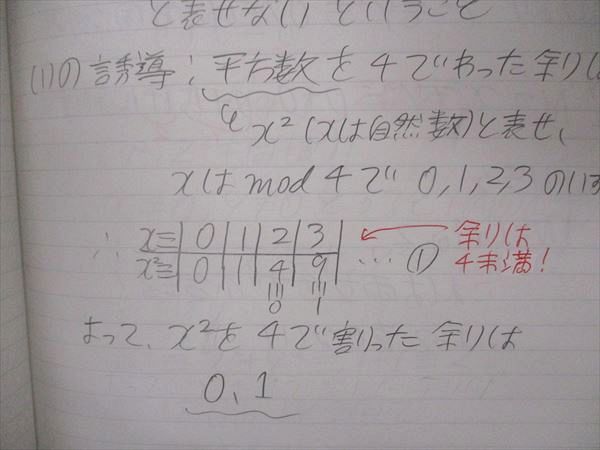 と表せない」ということ
(1)の誘導:平方数を4でわった余りは
x²(xは自然数)と表せ、
xはmod 4で 0,1,2,3のいず
∴ x≡ 0 1 2 3
x²≡ 0 1 4 9 … ①
≡ ≡
0 1
余りは
4未満!
よって、x²を4で割った余りは
0、1